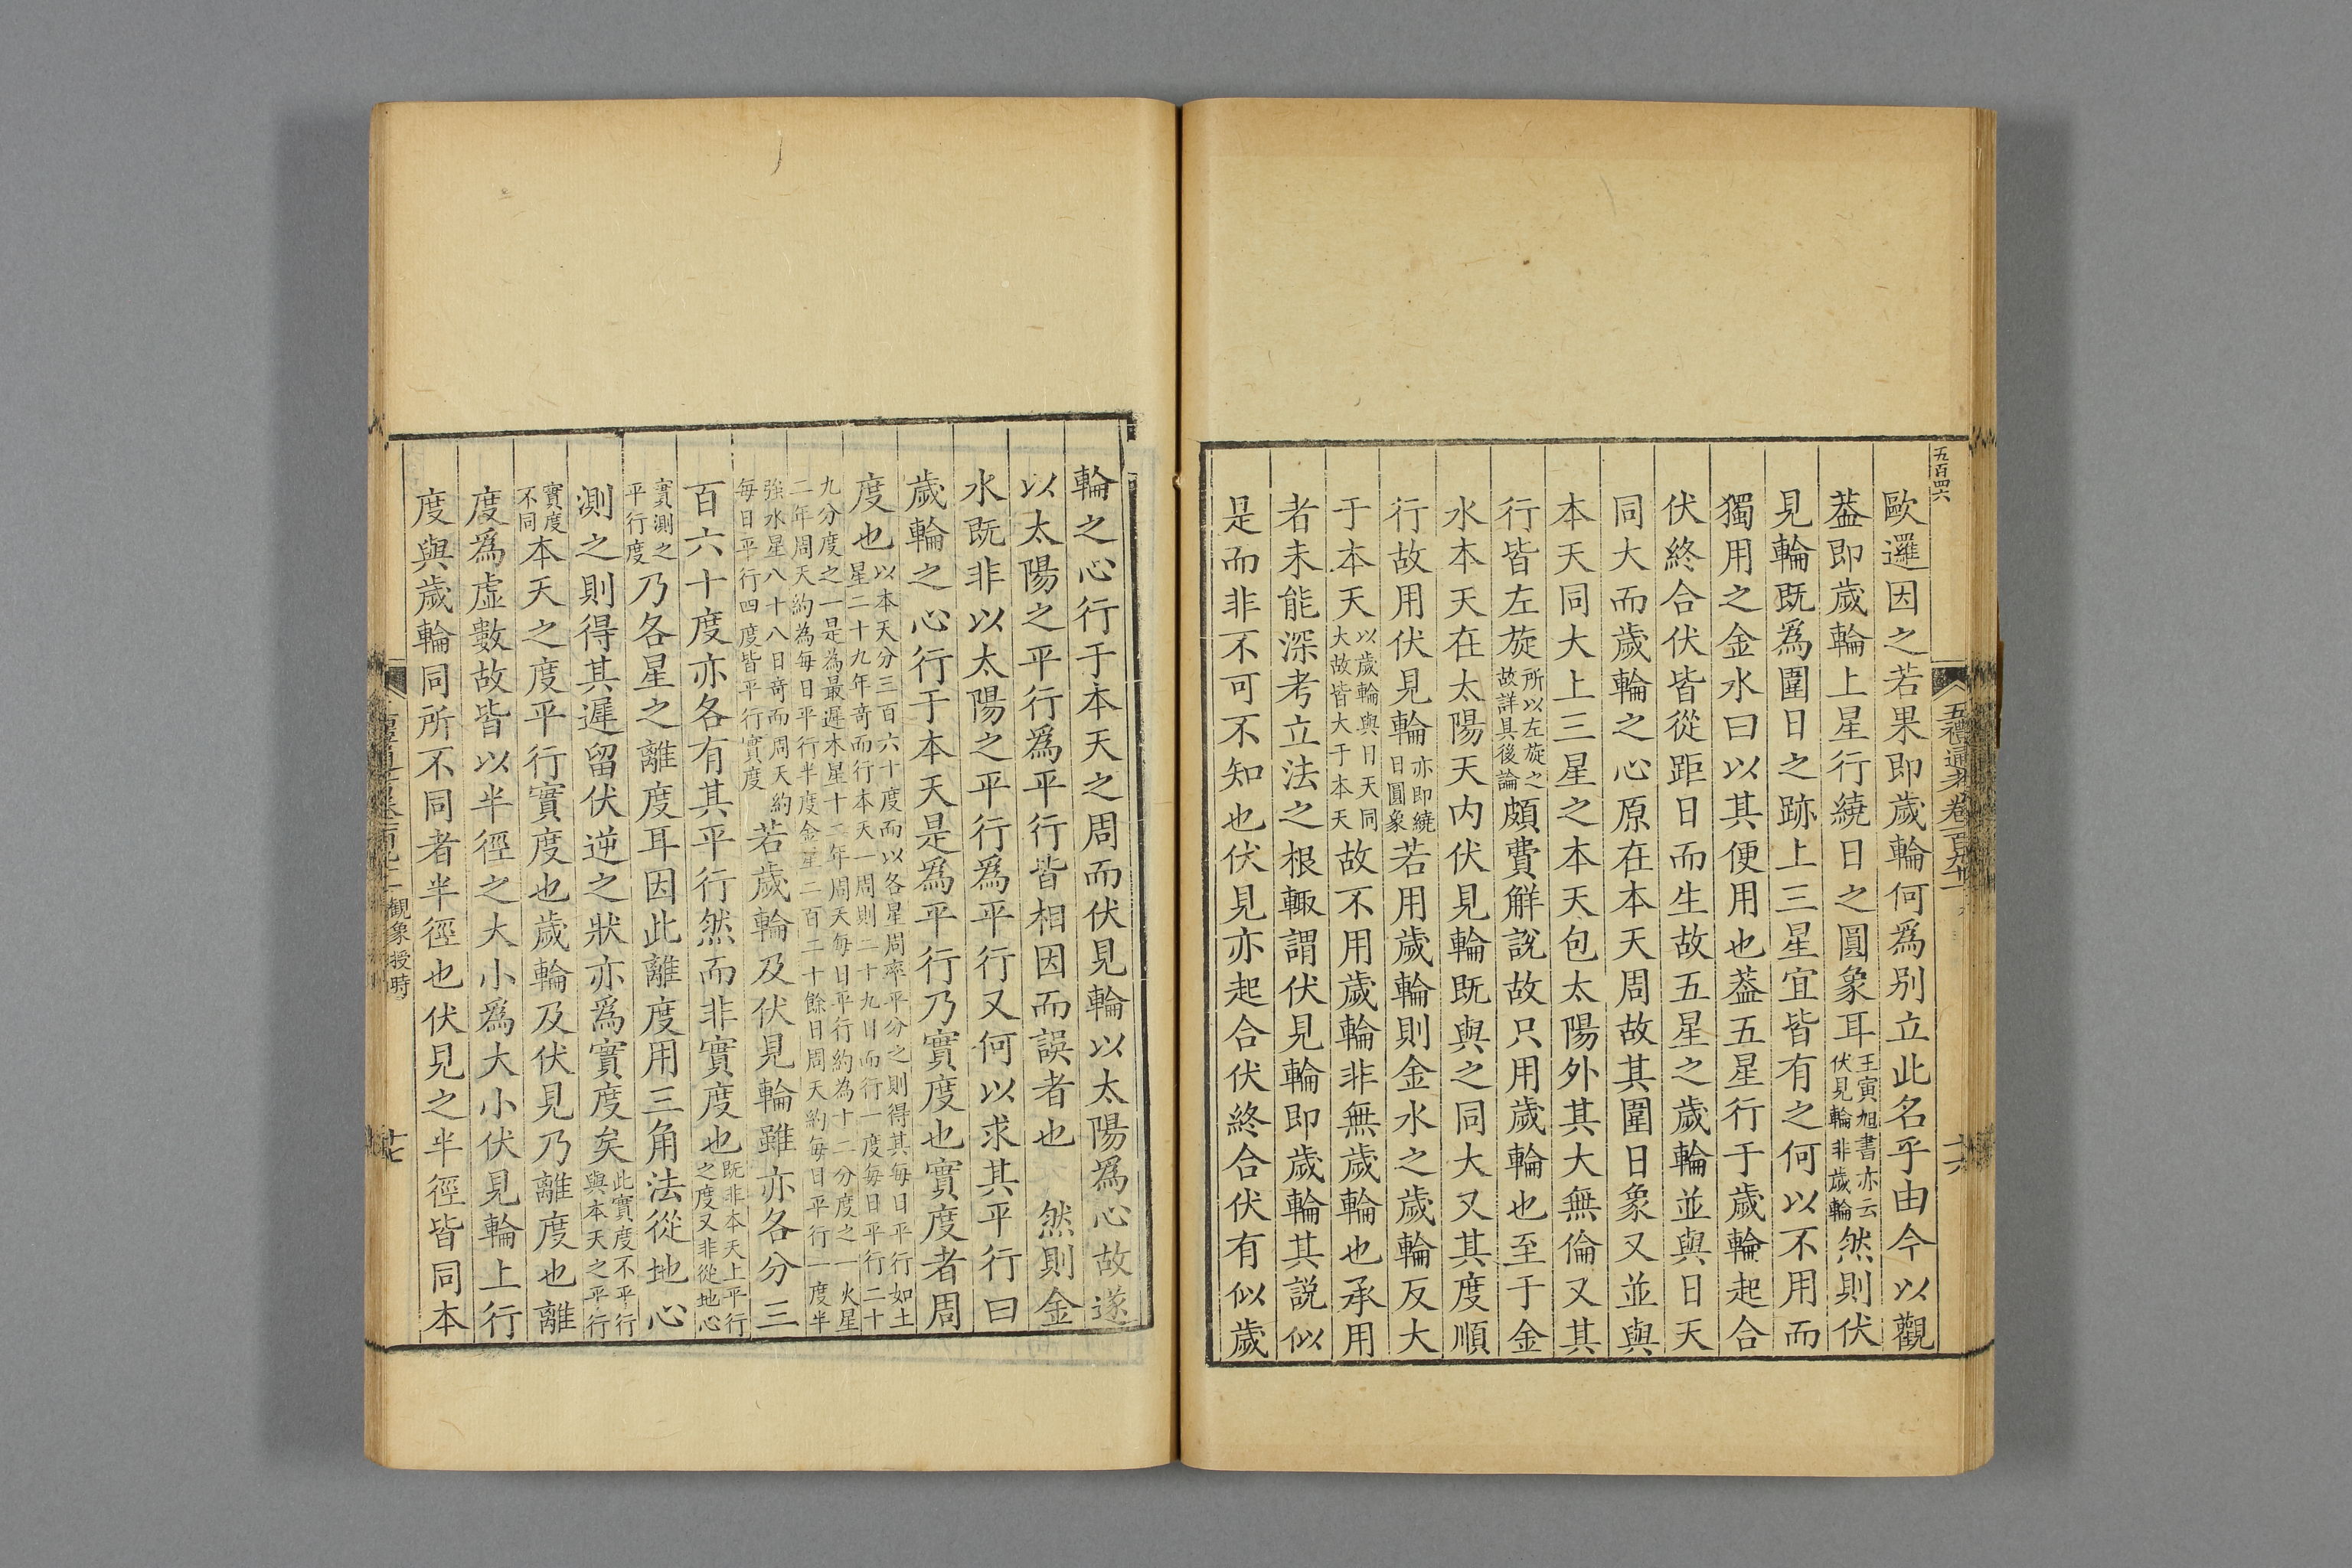 五百四六
五禮通考卷
十六
歐邏因之若果即歲輪何爲別立此名乎由今以觀
葢即歲輪上星行繞日之圓象耳王寅旭書亦云伏見輪非歲輪然則伏
見輪既爲圍日之跡上三星宜皆有之何以不用而
獨用之金水曰以其便用也葢五星行于歲輪起合
伏終合伏皆從距日而生故五星之歲輪並與日天
同大而歲輪之心原在本天周故其圍日象又並與
本天同大上三星之本天包太陽外其大無倫又其
行皆左旋所以左旋之故詳具後論頗費解說故只用歲輪也至于金
水本天在太陽天内伏見輪既與之同大又其度順
行故用伏見輪亦即繞日圓象若用歲輪則金水之歲輪反大
于本天以歲輪與日天同大故皆大于本天故不用歲輪非無歲輪也承用
者未能深考立法之根輙謂伏見輪即歲輪其説似
是而非不可不知也伏見亦起合伏終合伏有似歲
輪之心行于本天之周而伏見輪以太陽爲心故遂
以太陽之平行爲平行皆相因而誤者也　然則金
水既非以太陽之平行爲平行又何以求其平行曰
歲輪之心行于本天是爲平行乃實度也實度者周
度也以本天分三百六十度而以各星周率平分之則得其每日平行如土星二十九年奇而行本天一周則二十九日而行一度每日平行二十
九分度之一是為最遲木星十二年周天每日平行約為十二分度之一火星二年周天約為每日平行半度金星二百二十餘日周天約每日平行一度半
強水星八十八日奇而周天約每日平行四度皆平行實度若歲輪及伏見輪雖亦各分三
百六十度亦各有其平行然而非實度也既非本天上平行之度又非從地心
實測之平行度乃各星之離度耳因此離度用三角法從地心
測之則得其遲留伏逆之狀亦爲實度矣此實度不平行與本天之平行
實度不同本天之度平行實度也歲輪及伏見乃離度也離
度爲虛數故皆以半徑之大小爲大小伏見輪上行
度與歲輪同所不同者半徑也伏見之半徑皆同本
觀象授時
十七